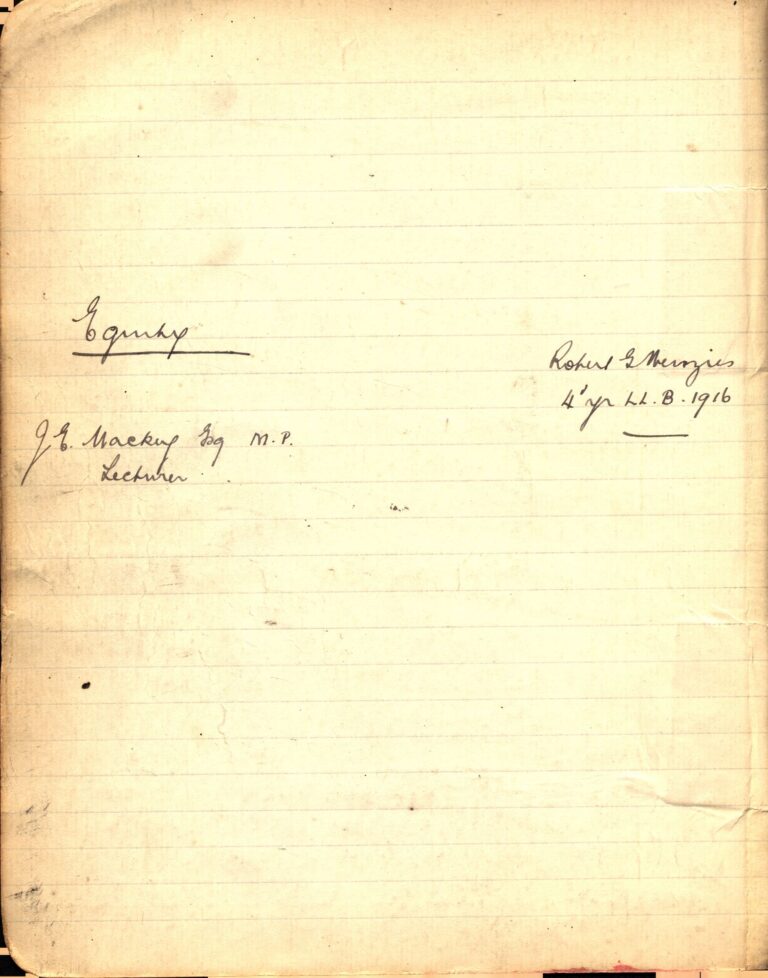 Equity
Robert G Menzies
4' yr LL.B. 1916
J E. Mackey Esq M.P.
Lecturer